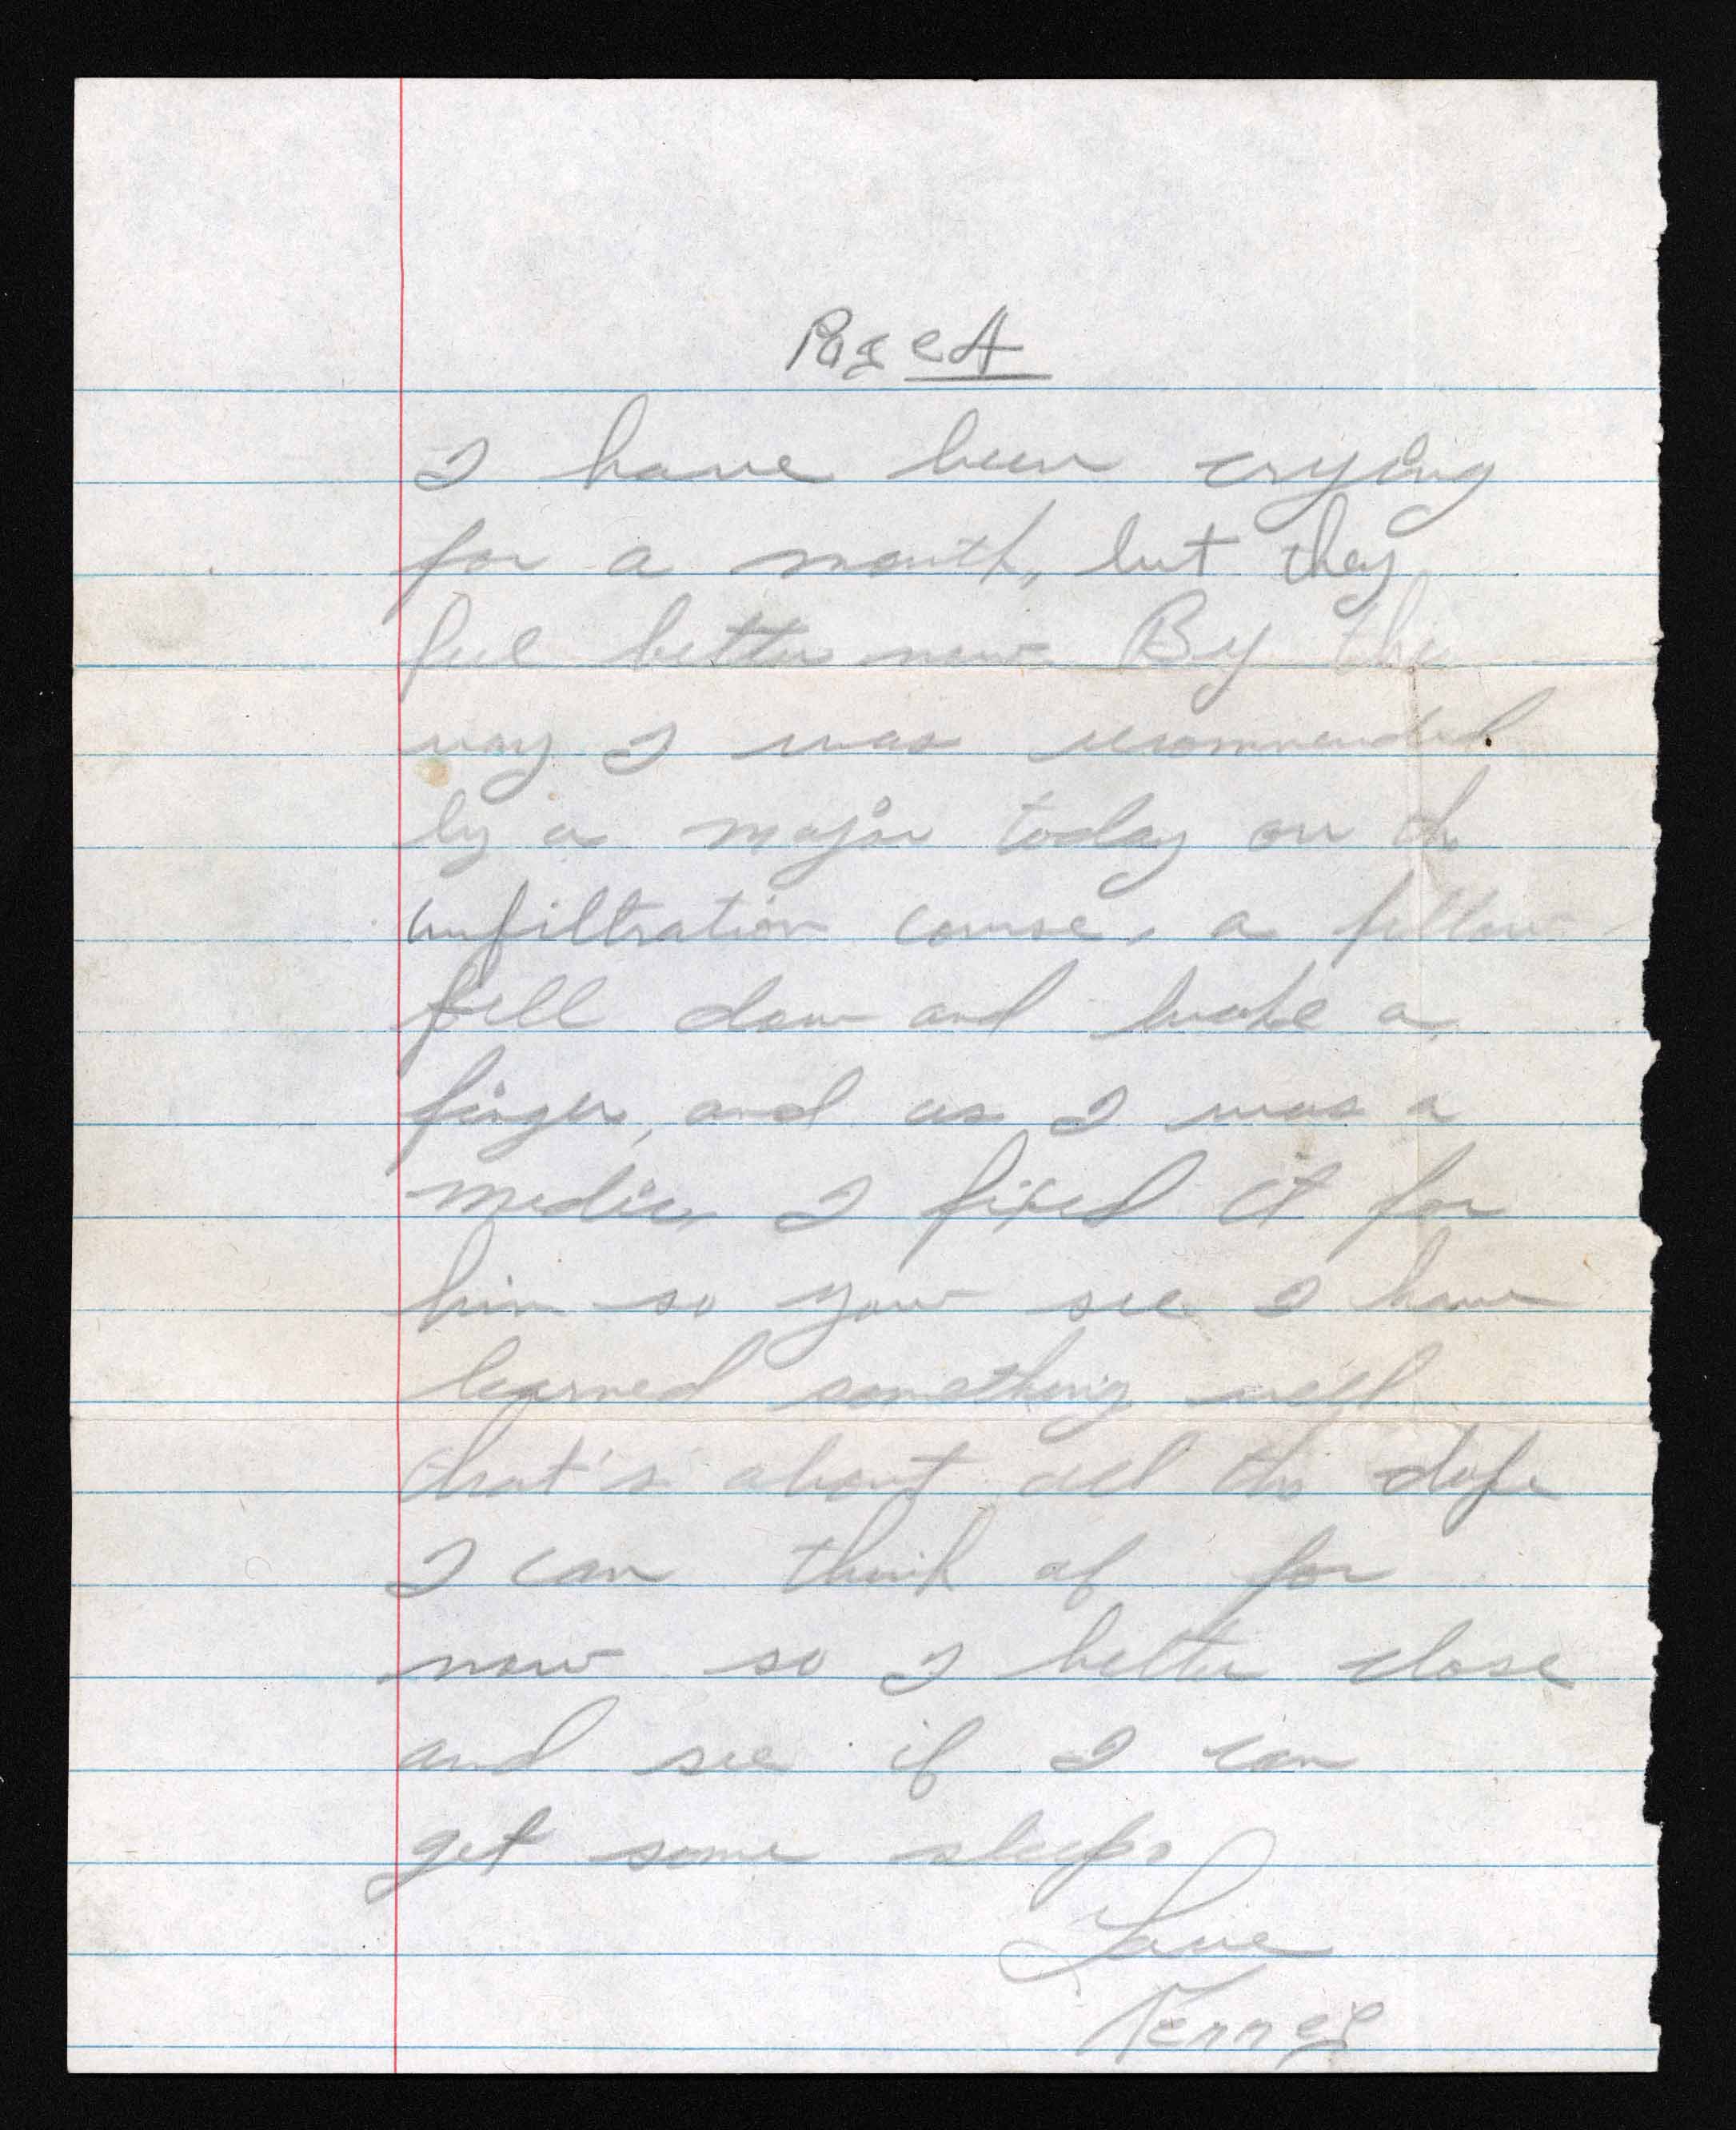 Page 4
I have been crying
for a month, but they
feel better now. By the
way I was recommended
by a major today on the
infiltration course, a fellow
fell down and broke a
finger, and as I was a
medic, I fixed it for
him so you see I have
learned something well
that's about all the dope
I can think of for
now so I better close
and see if I can
get some sleep.
Love
Kenney